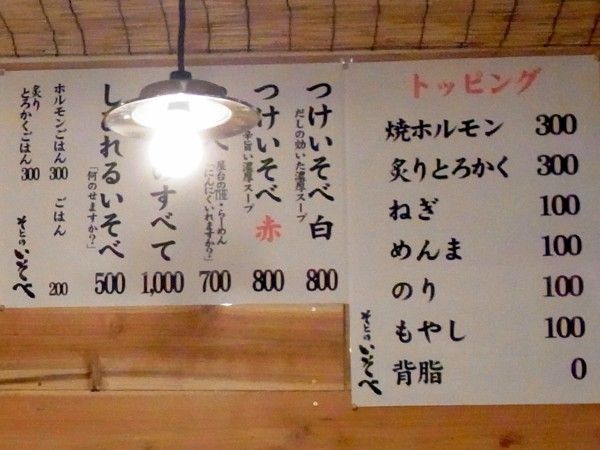 トッピング
焼ホルモン 300
炙りとろかく 300
ねぎ 100
めんま 100
のり 100
もやし 100
背脂 0
そとのいそべ
つけいそべ 白 800
だしの効いた濃厚スープ
つけいそべ 赤 800
辛旨い濃厚スープ
700
屋台の味・らーめん
「にんにくいれますか?」
すべて 1,000
れるいそべ 500
「何のせますか?」
ホルモンごはん 300
ごはん 200
炙りとろかくごはん 300
そとのいそべ